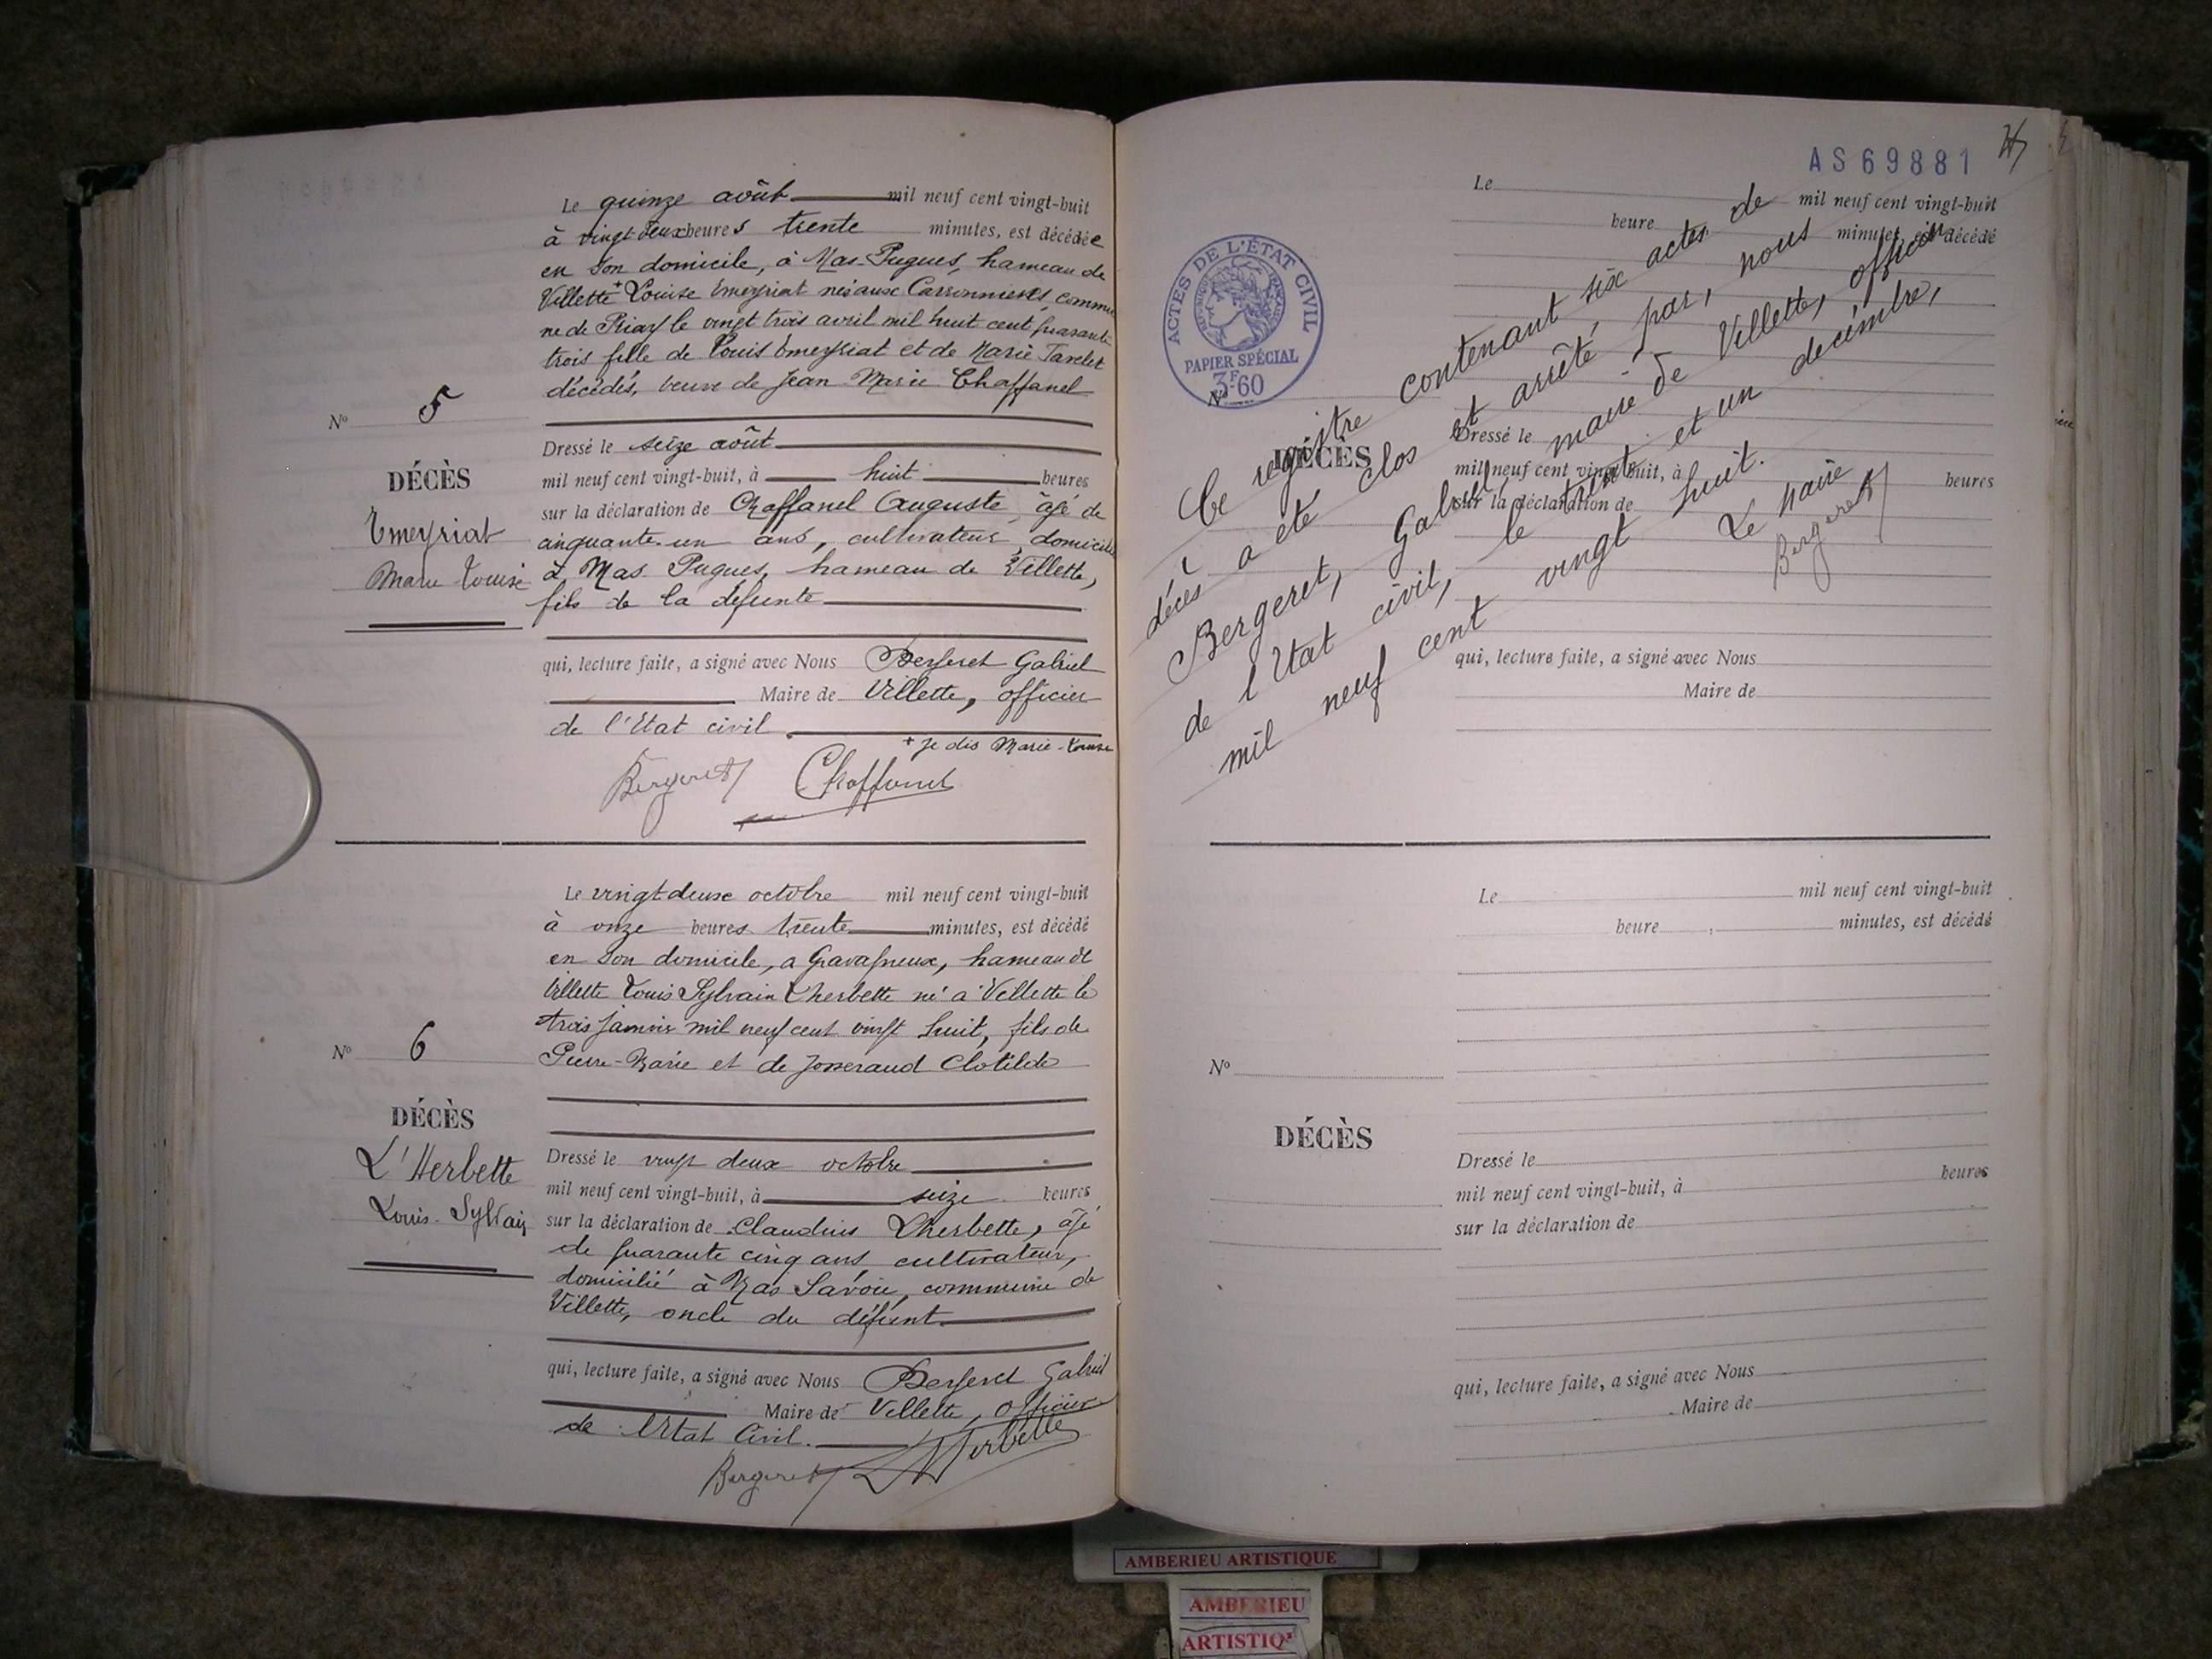 Le quinze août mil neuf cent vingt-huit
à vingt deux heures trente minutes, est décédée
en son domicile, à Mas-Pugues, hameau de
Villette + Louise Emeyriat née aux Carronnières, commu
ne de Priay le vingt trois avril mil huit cent quarante
trois fille de Louis Emeyriat et de Marie
décédés, veuve de Jean Marie Chaffanel
Nº 5
DÉCÈS
Emeyriat
Marie Louise
Dressé le seize août
mil neuf cent vingt-huit, à huit heures
sur la déclaration de Chaffanel Auguste, âgé de
cinquante-un ans, cultivateur, domicilié
à Mas Pugues, hameau de Villette,
fils de la défunte
qui, lecture faite, a signé avec Nous Bergeret Gabriel
Maire de Villette, officier
de l'Etat civil
+ je dis Marie-Louise
Bergeret Chaffanel
Le vingt deux octobre mil neuf cent vingt-huit
à onze heures trente minutes, est décédé
en son domicile, a Gravagneux, hameau de
Villette Louis Sylvain Lherbette né a Villette le
trois janvier mil neuf cent vingt huit, fils de
Pierre-Marie et de Josserand Clotilde
Nº 6
DÉCÈS
L'Herbette
Louis-Sylvain
Dressé le vingt deux octobre
mil neuf cent vingt-huit, à seize heures
sur la déclaration de Claudius Lherbette, âgé
de quarante cinq ans cultivateur,
domicilié à Mas Savoie, commune de
Villette, oncle du défunt.
qui, lecture faite, a signé avec Nous Bergeret Gabriel
Maire de Villette, officier
de l'Etat Civil.
Bergeret LHerbette
AS 69881
ACTES DE L'ÉTAT CIVIL
PAPIER SPÉCIAL
3F60
Le mil neuf cent vingt-huit
heure minutes, est décédé
Nº
DÉCÈS
Dressé le
mil neuf cent vingt-huit, à heures
sur la déclaration de
qui, lecture faite, a signé avec Nous
Maire de
Ce registre contenant six actes de
décès a été clos et arrêté par, nous
Bergeret, Gabriel, maire de Villette, officier
de l'Etat civil, le trente et un décembre,
mil neuf cent vingt huit.
Le Maire
Bergeret
Le mil neuf cent vingt-huit
heure minutes, est décédé
Nº
DÉCÈS
Dressé le
mil neuf cent vingt-huit, à heures
sur la déclaration de
qui, lecture faite, a signé avec Nous
Maire de
AMBERIEU ARTISTIQUE
AMBERIEU
ARTISTIQ